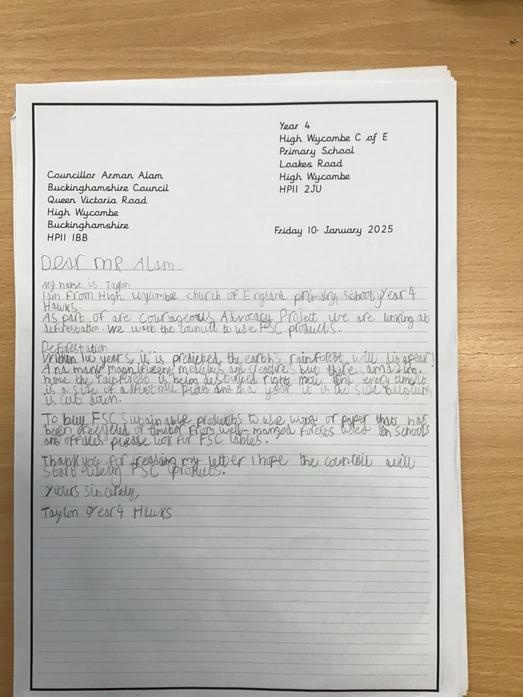 Year 4
High Wycombe C of E
Primary School
Loakes Road
High Wycombe
HP11 2JU
Councillor Arman Alam
Buckinghamshire Council
Queen Victoria Road
High Wycombe
Buckinghamshire
HP11 1BB
Friday 10 January 2025
Dear MR Alam
My name is Taylon
I am From High wycombe church of England primary school, year 4
Hawks.
As part of are courageous Advocacy Project we are looking at
deforestation. We want the to use FSC products.
Deforestation
Within years, it is predicted the earth's rainForest will
And many magnificent and creatures but there amazing
home the rainForest is being right now
is a size of a and the size Belgium
is cut down.
To buy FSC products to use or paper that has
been or From well- Forests used in schools
and please look for FSC
Thank you for my letter I hope the council will
start using FSC products.
Yours sincerely,
Taylon year 4 Hawks